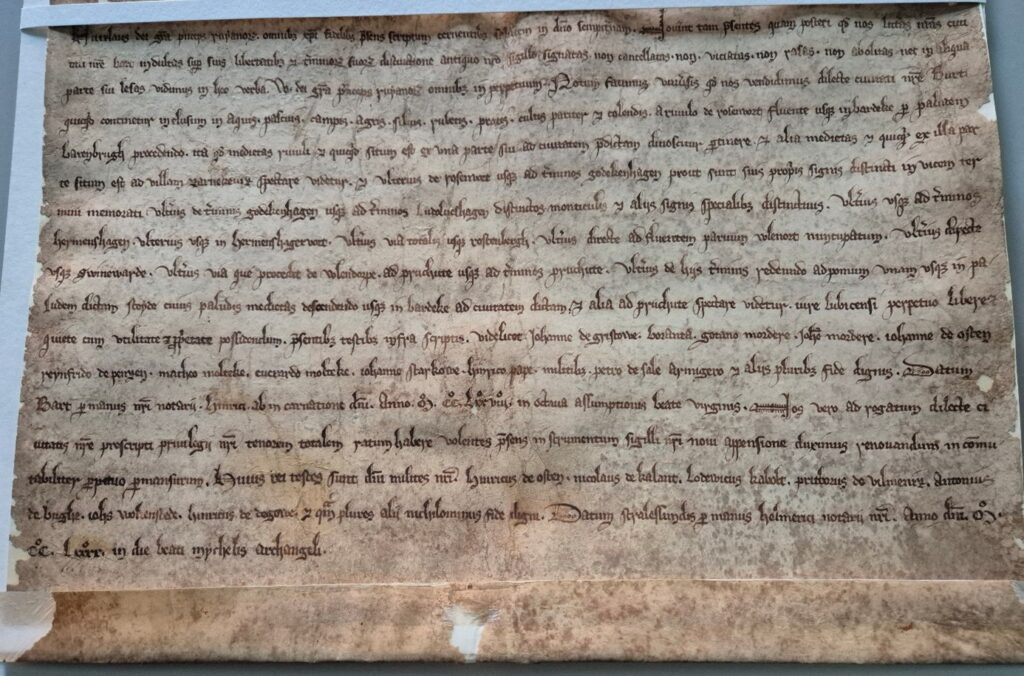 dei gra princeps ruyanor. omnibus presens scriptum cernentibus salutem in dno sempiternam. tam presentes quam posteri qd nos
tati nre bart indultas sup suis libertatibus et tminor suor distinctione antiquo nro sigillo signatas non cancellatas. non viciatas. non rasas. non abolitas nec in aliqua
parte sui lesas vidimus in hec verba. W. dei gra princeps ruyanor omnibus in perpetuum. Notum facimus universis qd nos vendidimus dilecte civitati nre Bart.
quicqd continetur inclusum in aquis. pascuis. campis. agris. silvis. rubetis. pratis. cultis pariter et colendis. a rivulo de rosenwort fluente usq in bardeke per paludem
procedendo. ita qd medietas rivuli et quicqd situm est ex una parte sui ad civitatem predictam dinoscitur ptinere. et alia medietas et quicqd ex illa par
te situm est ad villam spectare videtur. et ulterius de rosenwort usq ad tminos godekenhagen prout sunt suis propriis signis distincti in vicem ter
mini memorati. ulterius de tminis godekenhagen usq ad tminos ludolveshagen distinctos monticulis et aliis signis specialibus distinctiuis. ulterius usq ad tminos
hermenshagen. ulterius usq in hermenshagerwort. ulterius via totalis usq rostenbergh. ulterius directe ad fluentem parvum wlenort nuncupatum. ulterius directe
usq swinewarde. ulterius via que procedit de wlendorpe. ad pruchute usq ad tminos pruchute. ulterius de hiis tminis redeundo ad pomum unam usq in pa
ludem dictam cuius paludis medietas descendendo usq in bardeke ad civitatem dictam. et alia ad pruchute spectare videtur. iure lubicensi perpetuo libere et
quiete cum utilitate et proprietate possidendum. psentibus testibus infra scriptis. videlicet Johanne de gristowe. borantá. goranó mordere. johe mordere. iohanne de osten
reynfrido de penzen. macheo molteke. everardo molteke. iohanne starkowe. hinrico pape. militibus. petro de sale armigero et aliis pluribus fide dignis. Datum
Bart p manus nri notarii. hinrici. ab in carnatione dni. Anno. M. CC. in octava assumptionis beate virginis. Nos vero ad rogatum dilecte ci
vitatis nre prescripti privilegii nri tenorem totalem ratum habere volentes presens instrumentum sigilli nri novi appensione duximus renovandum in comu
tabiliter ppetuo pmansurum. Huius rei testes sunt dni milites nri. Hinricus de osten. nicolaus de kalant. Lodewicus kabolt. pritborus de vilmenitz. Antonius
de bughe. iohs wokenstede. hinricus de degowe. et qm plures alii nichilominus fide digni. Datum stralessundis p manus helmerici notarii nri. Anno dni. M.
CC. Lxxx. in die beati mychelis archangeli.